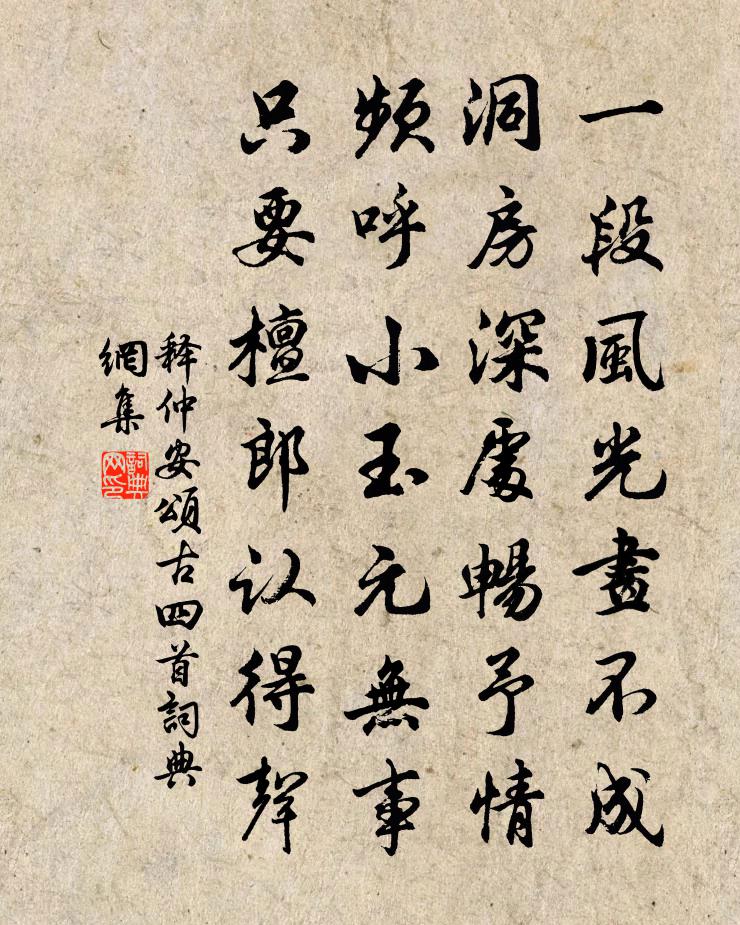 一段風光畫不成
洞房深處暢予情
頻呼小玉元無事
只要檀郎认得聲
释仲安頌古四首詞典
網集
詞典
网印